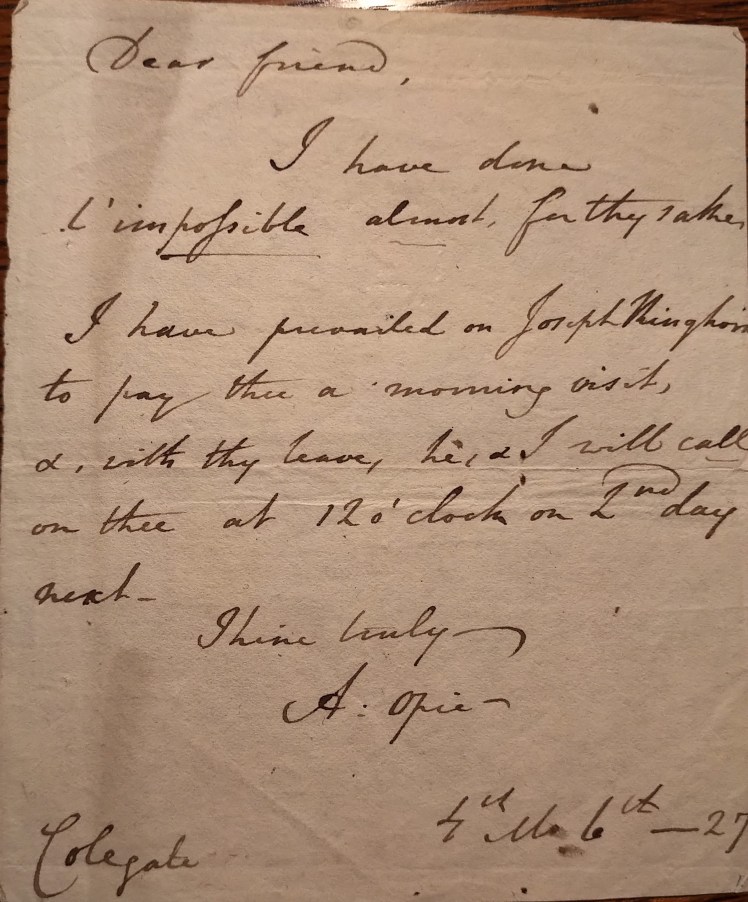 Dear friend,
I have done
l'impossible almost, for thy sake
I have prevailed on Joseph Kinghorn
to pay thee a morning visit,
&, with thy leave, he, & I will call
on thee at 12 o'clock on 2nd day
next -
Thine truly
A: Opie -
4th Mo 6th - 27
Colegate